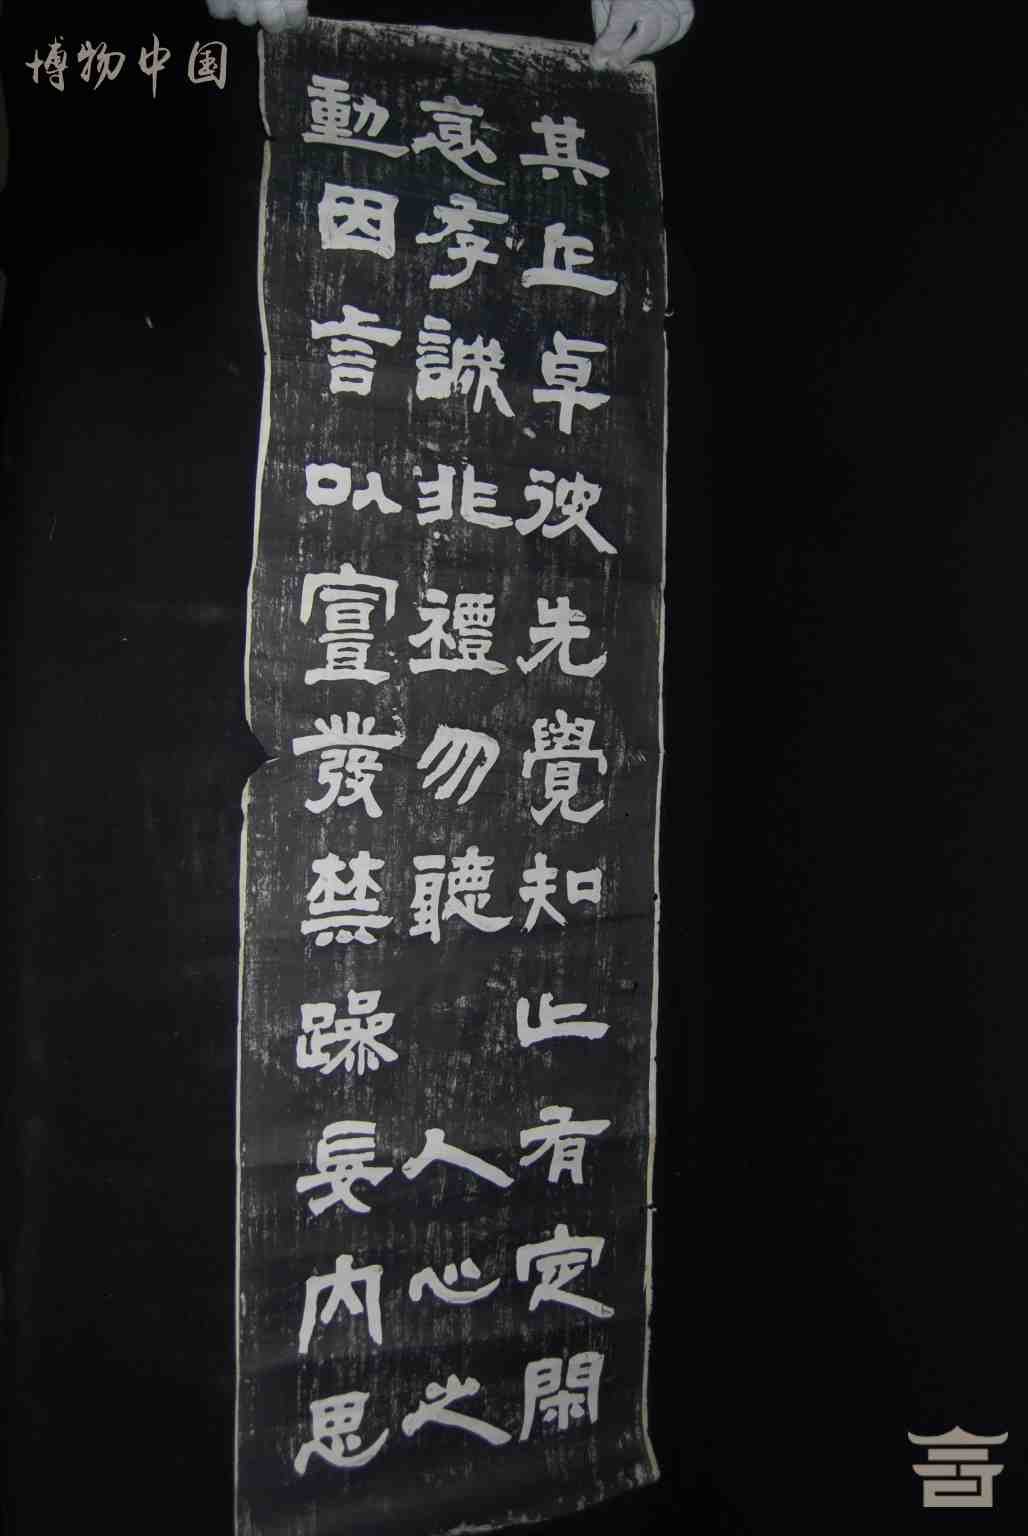 博物中国
其正卓彼先覺知止有定閑
意存誠非禮勿聽人心之
動因言以宣發禁躁妄內思